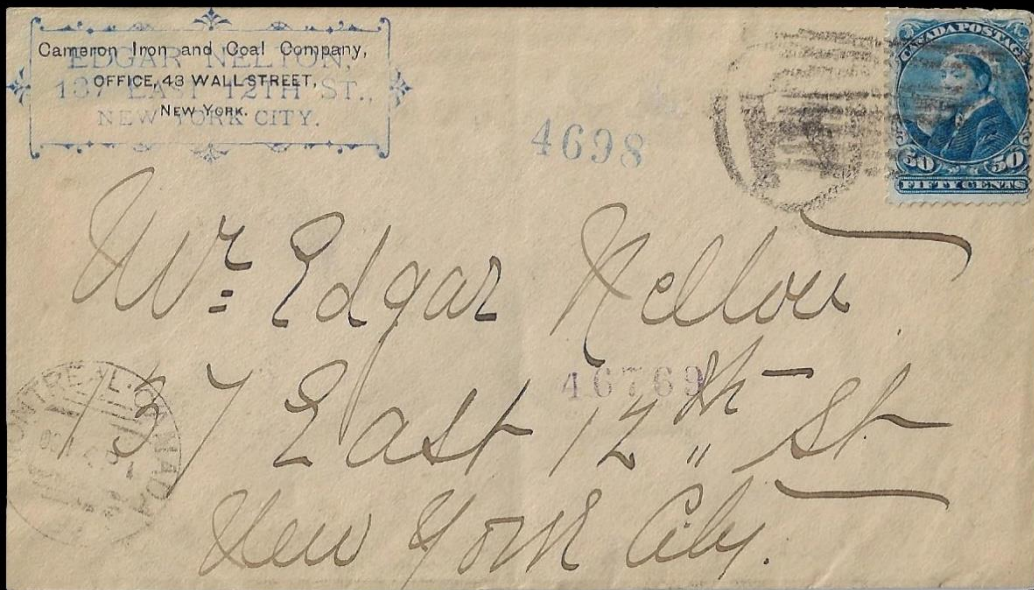 Cameron Iron and Coal Company,
OFFICE, 43 WALL STREET,
NEW YORK.
EDGAR NELTON,
137 EAST 12TH ST.,
NEW YORK CITY.
4698
CANADA POSTAGE
50 50
FIFTY CENTS
Mr. Edgar Nelton
137 East 12th St
New York City.
46769
MONTREAL. CANADA